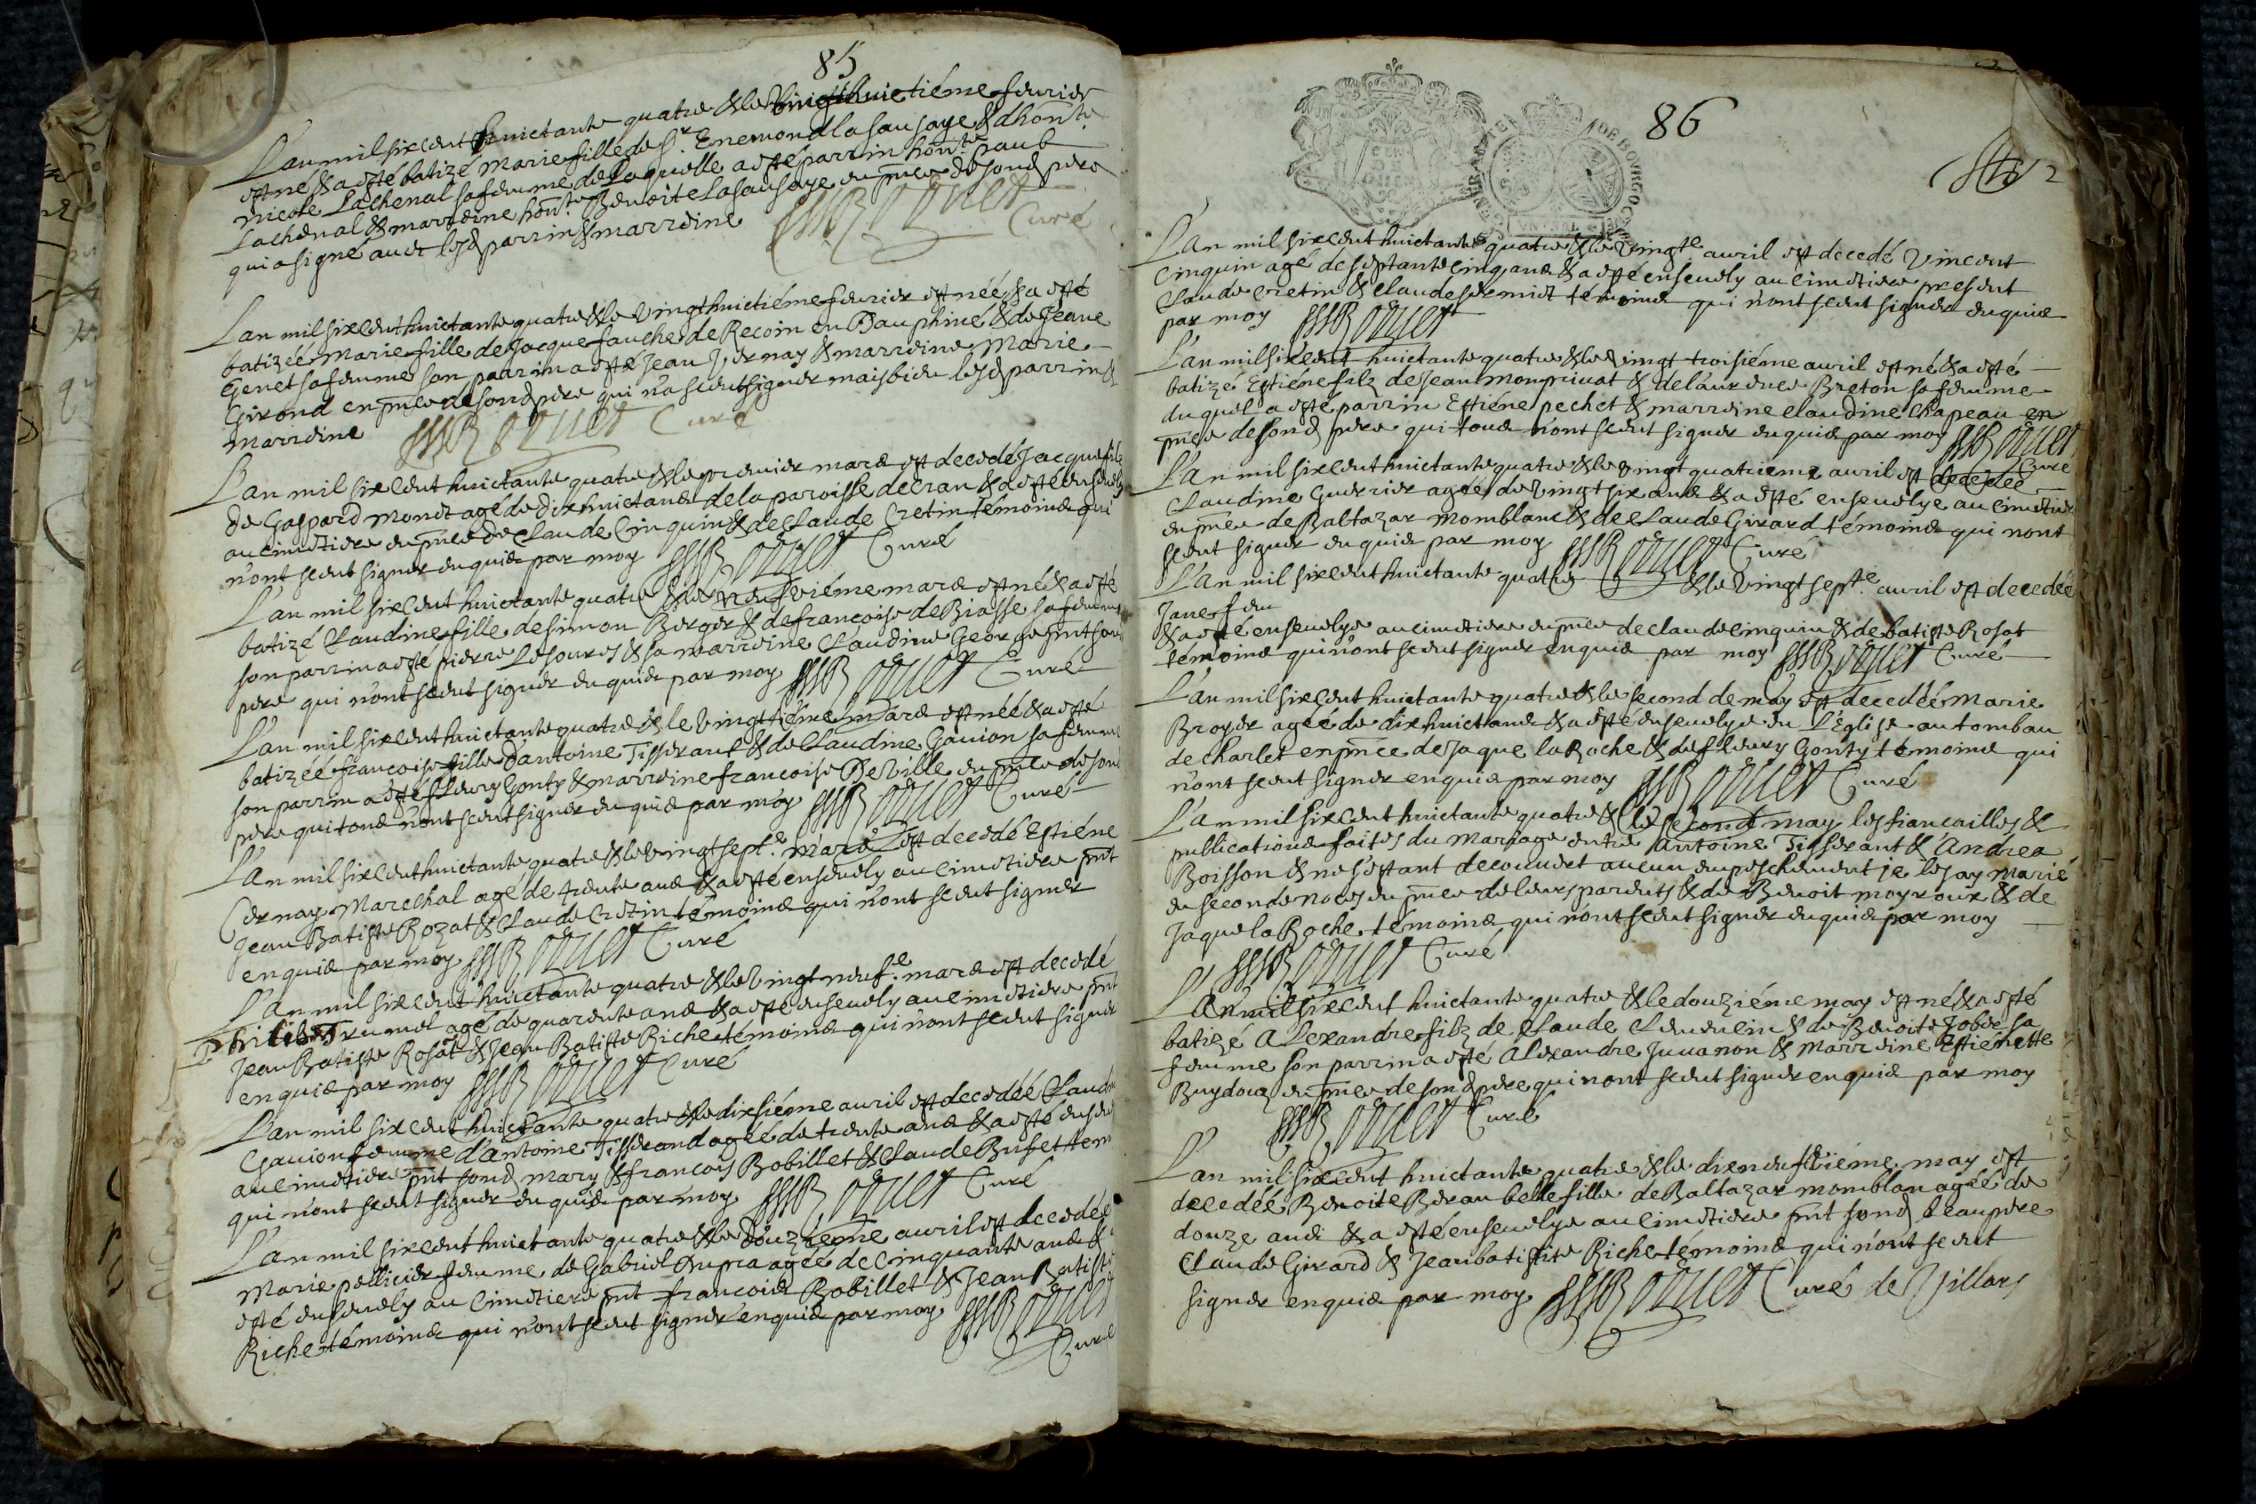 85
L'an mil six cent huictante quatre & le vingthuictiéme feurier
est né & a esté batizé Marie fille de Sr. Enemond la sausaye & d'honte.
nicole Lachenal sa femme de laquelle a esté parrin honte. paul
Lachenal & marreine honte. Benoite Lasausaye en pñce de sond pere
qui a signé auec lesd parrin & marreine
Curé
L'an mil six cent huictante quatre & le vingthuictiéme feurier est née & a esté
batizeé Marie fille de Jacque fauche de Recoin en Dauphiné & de Jeane
Genet sa femme son parrin a esté Jean Jernay & marreine Marie
Girond en pñce de sond pere qui n'a sceut signer mais bien lesd parrin &
marreine Curé
L'an mil six cent huictante quatre & le premier mars est decedé Jacque fils
de Gaspard Monet agé de dixhuict ans de la paroisse de Cran & a esté enseuely
au cimetiere en pñce de Claude Cinquin & de Claude Cretin témoins qui
n'ont sceut signer enquis par moy Curé
L'an mil six cent huictante quatre & le neufviéme mars est né & a esté
batizé Claudine fille de simon Berger & de francoise de Biasse sa femme
son parrin a esté pierre Lesoures & sa marreine Claudine George pñt son
pere qui n'ont sceut signer enquis par moy Curé
L'an mil six cent huictante quatre & le vingttiéme mars est née & a esté
batizeé francoise fille d'antoine Tisserant & de Claudine Gauion sa femme
son parrin a esté fleury Gonty & marreine francoise De Ville en pñce de son
pere qui tous n'ont sceut signer enquis par moy Curé
L'an mil six cent huictante quatre & le vingt septe. mars est decedé Estiéne
Cernay Marechal agé de trente ans & a esté enseuely au cimetiere pñt
Jean Batiste Rozat & Claude Cretin témoins qui n'ont sceut signer
enquis par moy Curé
L'an mil six cent huictante quatre & le vingt neufe. mars est decedé
philibert rumel agé de quarente ans & a esté enseuely au cimetiere pñt
Jean Batiste Rosat & Jean Batiste Riche témoins qui n'ont sceut signer
enquis par moy Curé
L'an mil six cent huictante quatre & le dixsiéme auril est decedeé Claudine
Gauion femme d'antoine Tisserand ageé de trente ans & a esté enseuely
au cimetiere pñt sond mary & francois Bobillet & Claude Bufet tem
qui n'ont sceut signer enquis par moy Curé
L'an mil six cent huictante quatre & le douzieme auril est decedeé
Marie pellicier femme de Gabriel Dupra ageé de cinquante ans & a
esté enseuely au cimetiere pñt francois Bobillet & Jean Batiste
Riche témoins qui n'ont sceut signer enquis par moy
Curé
86
L'an mil six cent huictante quatre & le vingte auril est decedé Vincent
Cinquin agé de septante cinq ans & a esté enseuely au cimetiere present
Claude Cretin & Claude sermet témoins qui n'ont sceut signer enquis
par moy
L'an mil six cent huictante quatre & le vingt troisiéme auril est né & a esté
batizé Estiéne filz de Jean monpriuat & de laurence Breton sa femme
duquel a esté parrin Estiéne pechet & marreine claudine Chapeau en
pñce de sond pere qui tous n'ont sceut signer enquis par moy
Curé
L'an mil six cent huictante quatre & le vingt quatrieme auril est decedeé
Claudine Guerrier ageé de vingt six ans & a esté enseuelye au cimetiere
en pñce de Baltazar Momblanc & de Claude Girard témoins qui n'ont
sceut signer enquis par moy Curé
L'an mil six cent huictante quatre & le vingt septe. auril est decedeé
Jane fem
& a esté enseuelye au cimetiere en pñce de claude cinquin & de batiste Rosat
témoins qui n'ont sceut signer enquis par moy Curé
L'an mil six cent huictante quatre & le second de may est decedeé Marie
Broyer ageé de dixhuict ans & a esté enseuelye en L'Eglise au tombau
de Charlet en pñce de Jaque la Roche & de fleury Gonty témoins qui
n'ont sceut signer enquis par moy Curé
L'an mil six cent huictante quatre & le second may les fiancailles &
publications faites du Mariage entre antoine Tisserant & Andrea
Boisson & ne s'estant decouuert aucun empeschement je les ay Marié
en seconde noces en pñce de leurs parents & de Benoit moyroux & de
Jaque la Roche témoins qui n'ont sceut signer enquis par moy
Curé
L'an mil six cent huictante quatre & le douziéme may est né & a esté
batizé Alexandre filz de Claude & de Benoite Jobde sa
femme son parrin a esté Alexandre Juuanon & Marreine Estienette
Buydouz en pñce de sond pere qui n'ont sceut signer enquis par moy
Curé
L'an mil six cent huictante quatre & le dixneufuiéme may est
decedeé Benoite Beran belle fille de Baltazar momblan ageé de
douze ans & a esté enseuelye au cimetiere pñt sond beaupere
Claude Girard & Jean batiste Riche témoins qui n'ont sceut
signer enquis par moy Curé de Villars